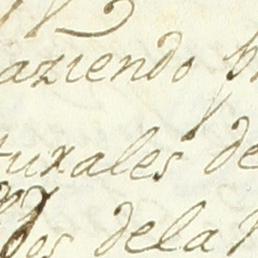 aziendo
turales de
dos dela